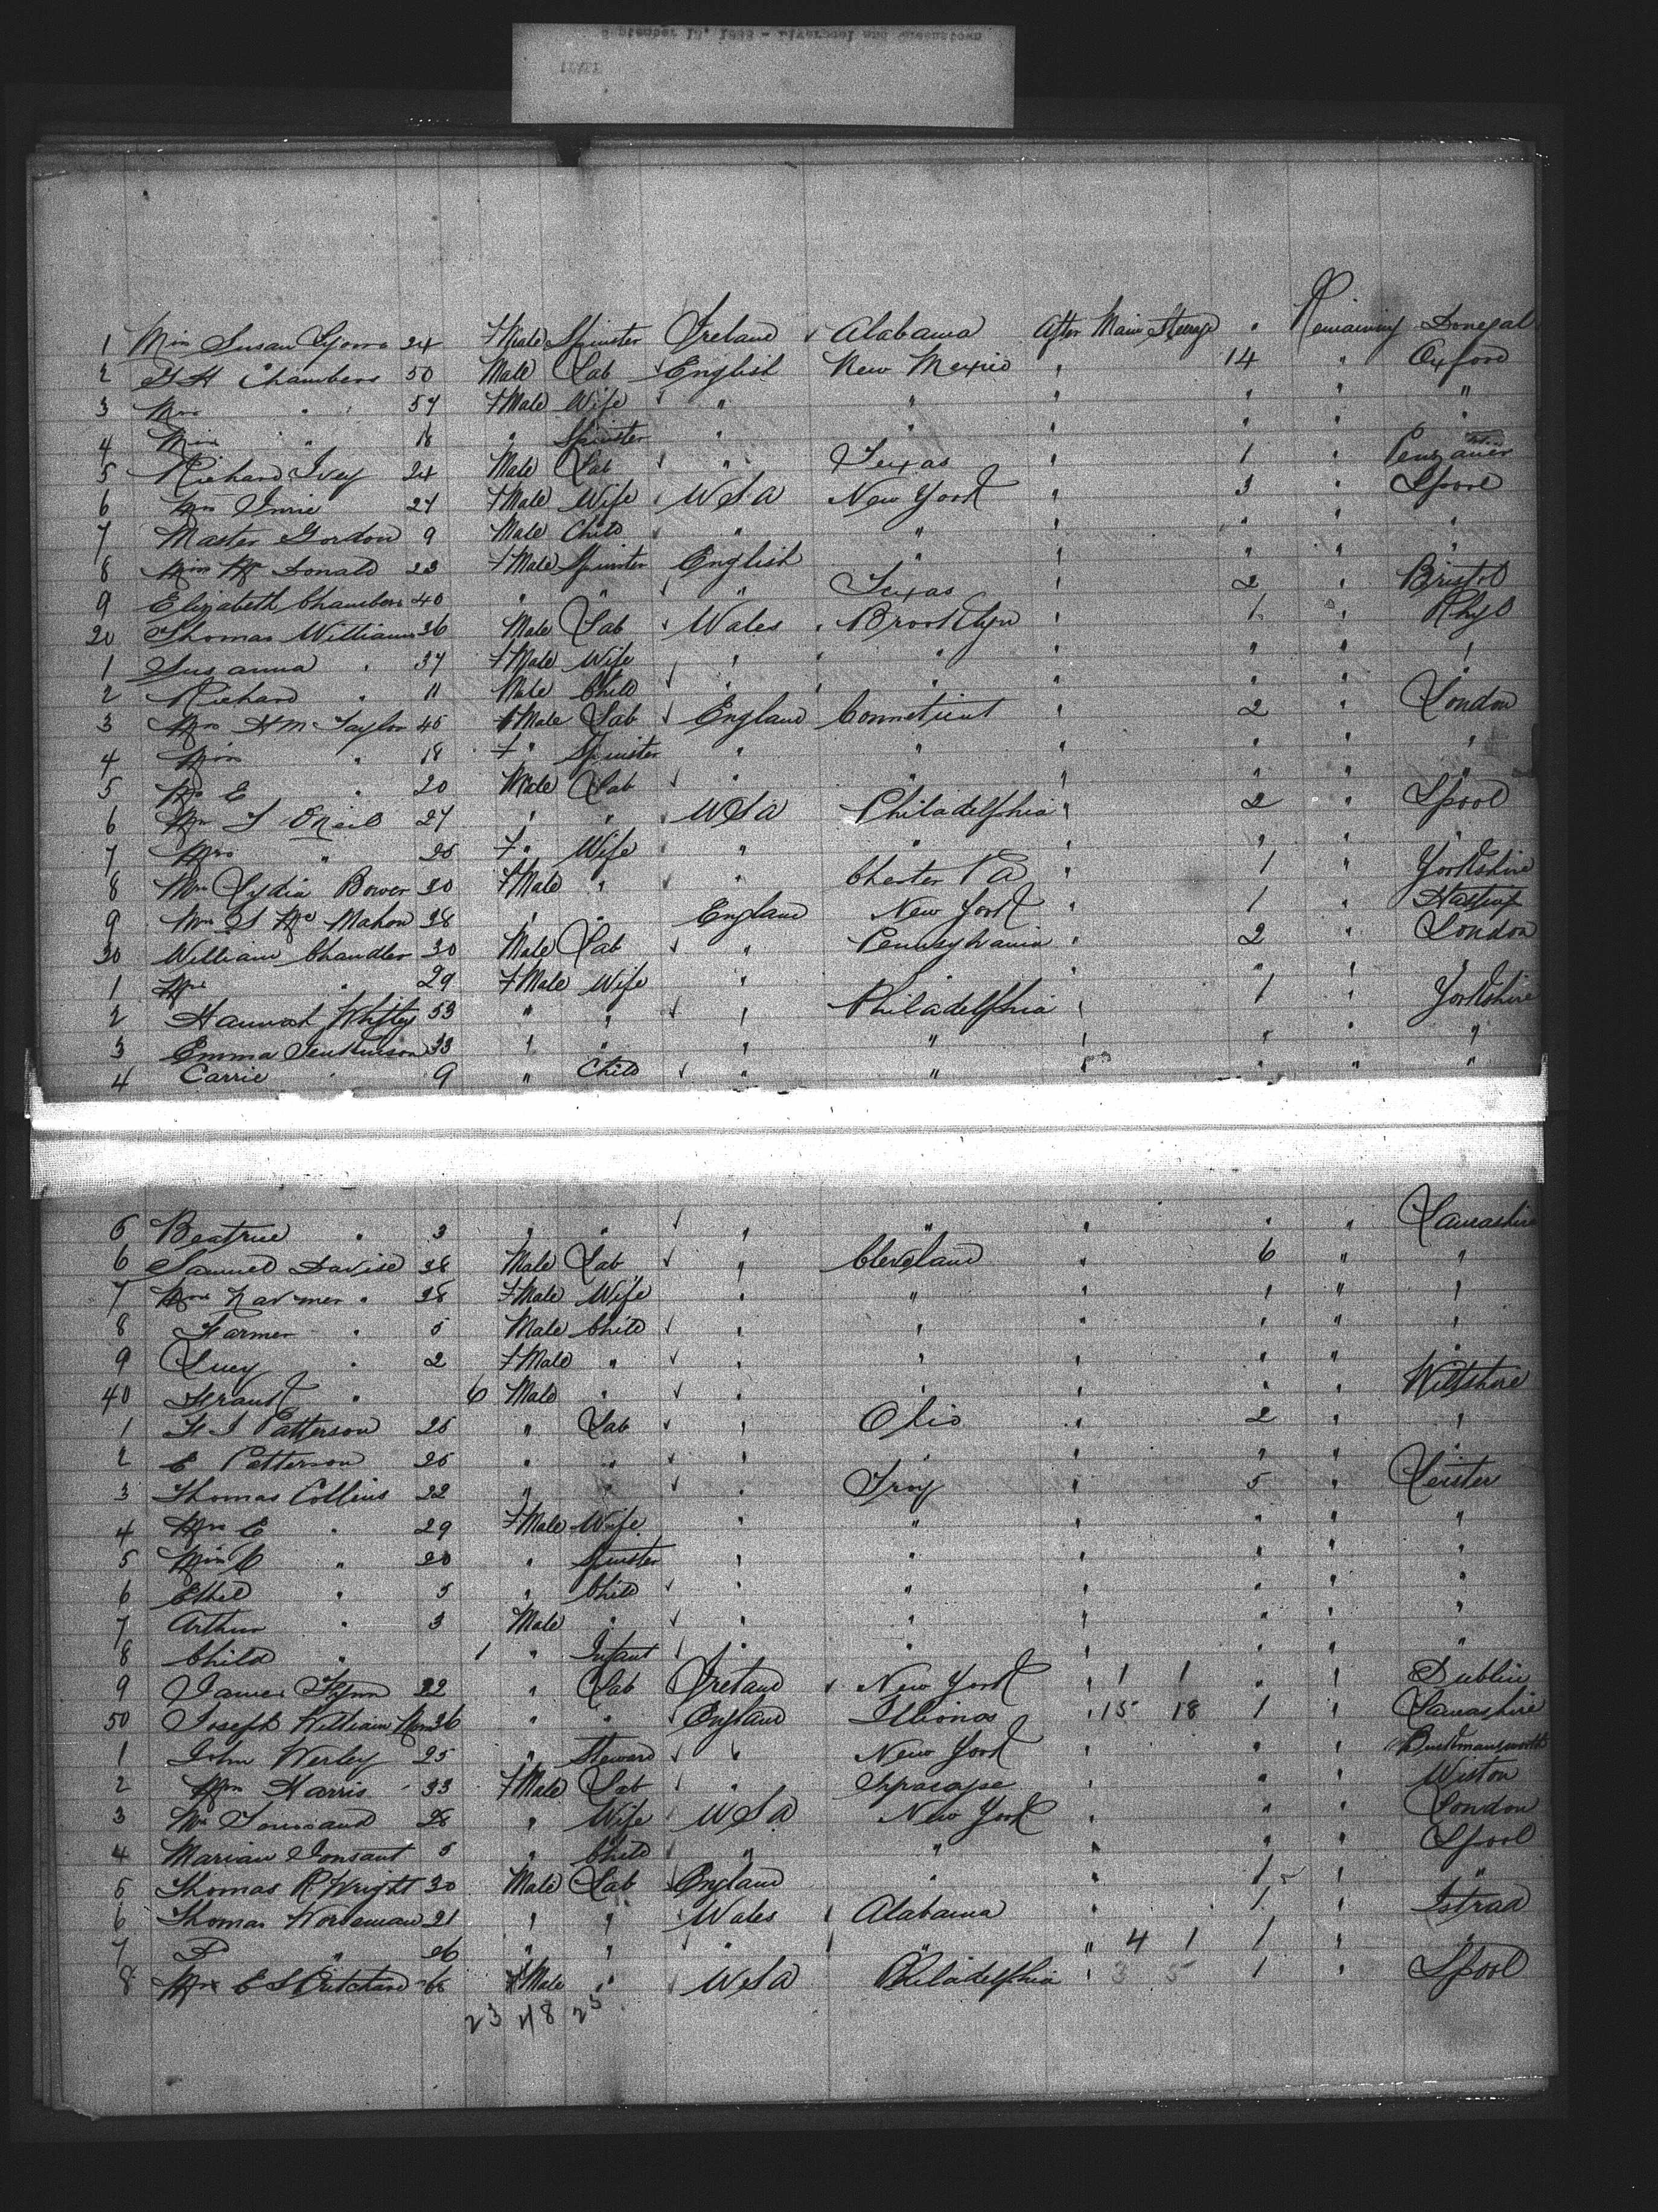 1 Miss Susan Lyons 24 FMale Spinster Ireland Alabama After Main Steerage " Remaining Donegal
2 G H Chambers 50 Male Lab English New Mexico " 14 " Oxford
3 Mrs " 54 FMale Wife " " " " " "
4 Miss " 18 " Spinster " " " " " "
5 Richard Ivey 24 Male Lab " Texas " 1 "
6 Mrs 24 FMale Wife USA New York " 3 " Lpool
7 Master Gordon 9 Male Child " " " " " "
8 Miss Mc Donald 23 FMale Spinster English " " " " "
9 Elizabeth Chambers 40 " " " Texas " 2 " Bristol
20 Thomas Williams 36 Male Lab Wales Brooklyn " 1 " Rhyl
1 Susanna " 37 FMale Wife " " " " " "
2 Richard " 11 Male Child " " " " " "
3 Mrs H M Taylor 45 FMale Lab England Conneticut " 2 " London
4 Miss " 18 F " Spinster " " " " " "
5 Mr E " 20 Male Lab " " " " " "
6 Mr T ONeil 27 " " USA Philadelphia " 2 " Lpool
7 Mrs " 25 F " Wife " " " " " "
8 Mrs Lydia Bower 20 FMale " " Chester PA " 1 " Yorkshire
9 Mrs S Mc Mahon 38 " " England New York " 1 "
30 William Chandler 30 Male Lab " Pennsylvania " 2 " London
1 Mrs " 29 FMale Wife " " " " "
2 Hannah 53 " " " Philadelphia " 1 " Yorkshire
3 Emma Jenkinson 33 " " " " " " " "
4 Carrie " 9 " Child " " " " " "
5 Beatrice " 3 " " " " " " " Lancashire
6 Samuel Davise 38 Male Lab " Cleveland " 6 " "
7 Mrs " 28 FMale Wife " " " " " "
8 Farmer " 5 Male Child " " " " " "
9 Lucy " 2 FMale " " " " " " "
40 " 6 Male " " " " " " Wiltshire
1 H J Patterson 25 " Lab " Ohio " 2 " "
2 E Petterson 25 " " " " " " " "
3 Thomas Collins 22 " " " Troy " 5 "
4 Mrs E " 29 FMale Wife " " " " " "
5 Miss C " 20 " Spinster " " " " " "
6 Ethel " 5 " Child " " " " " "
7 Arthur " 3 Male " " " " " " "
8 Child " 1 " Infant " " " " " "
9 James Flynn 22 " Lab Ireland New York " 1 1 " " Dublin
50 Joseph William 36 " " England Illionos " 15 18 1 " Lancashire
1 John Werley 25 " Steward " New York " " "
2 Mrs Harris 33 FMale Lab " " " " Weston
3 Mrs 28 " Wife USA New York " " " London
4 Marian 5 " Child " " " " " Lpool
5 Thomas R Wright 30 Male Lab England " " 1 " "
6 Thomas 21 " " Wales Alabama " 1 " Istrad
7 " 26 " " " " " 4 1 1 " "
8 Mrs E S Pritchard 66 FMale " USA Philadelphia " 3 5 1 " Lpool
23 48 25